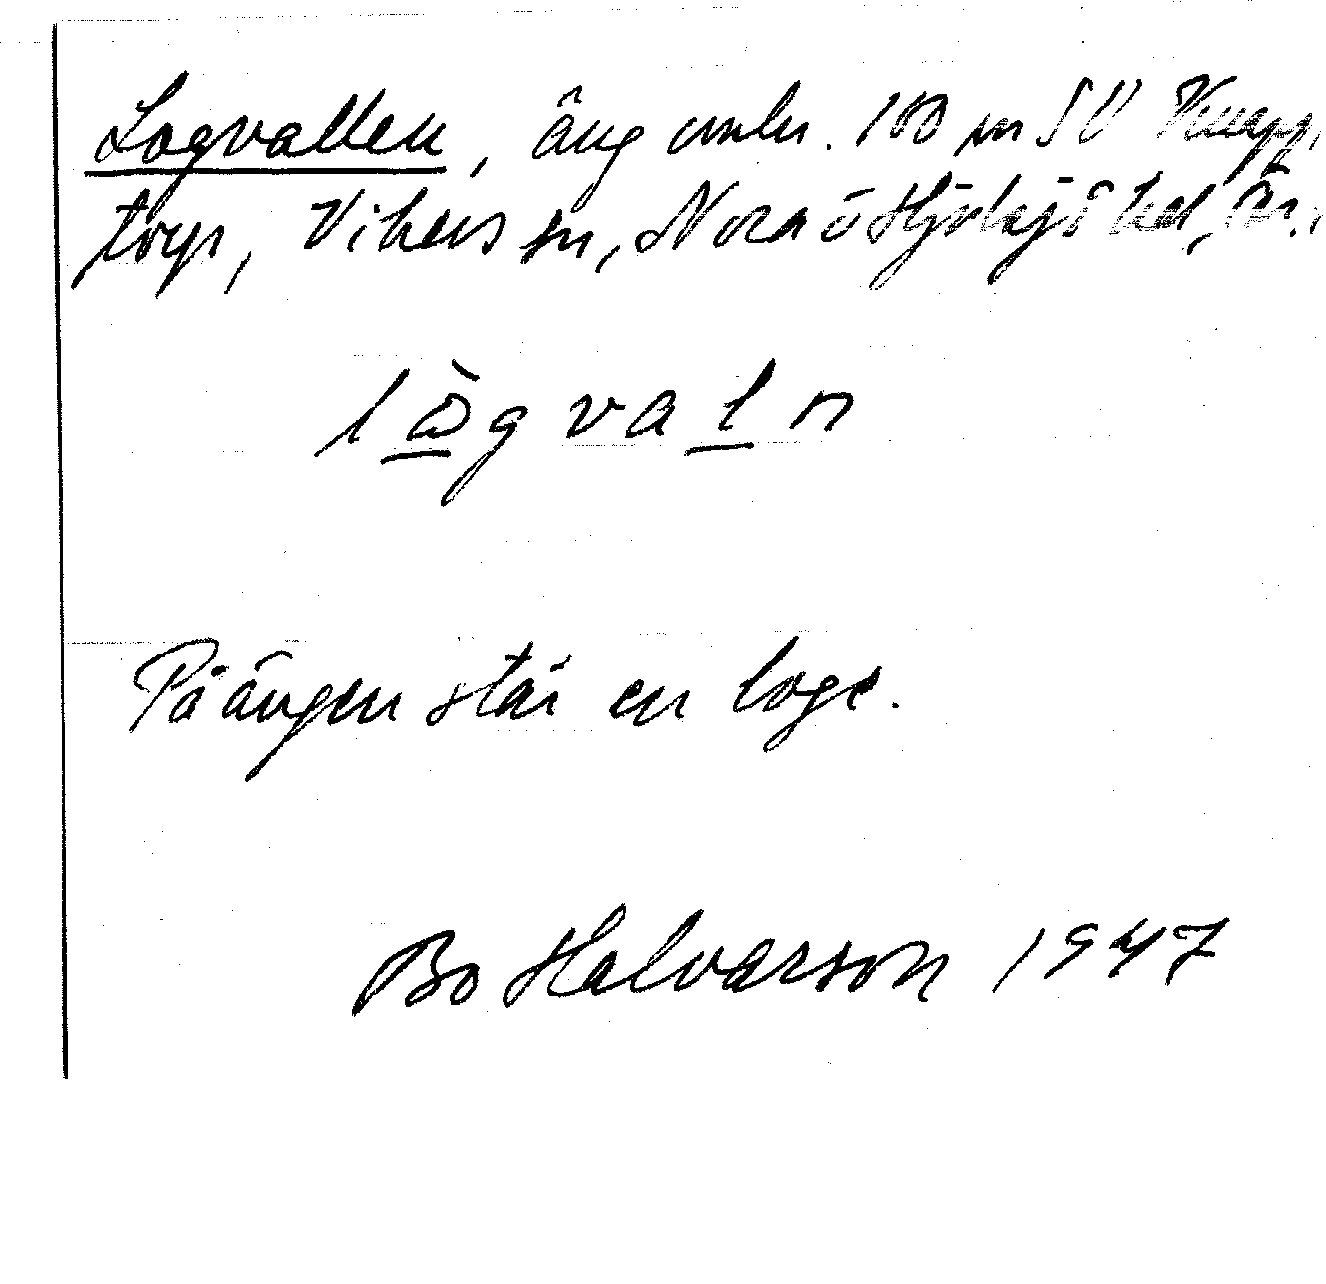 Logvallen, äng omkr. 100 m SV Knapp,
torp, Vikers sn, Nora ö Hjulsjö hd, Ör.
lògvaln
På ängen står en loge.
Bo Halvarson 1947